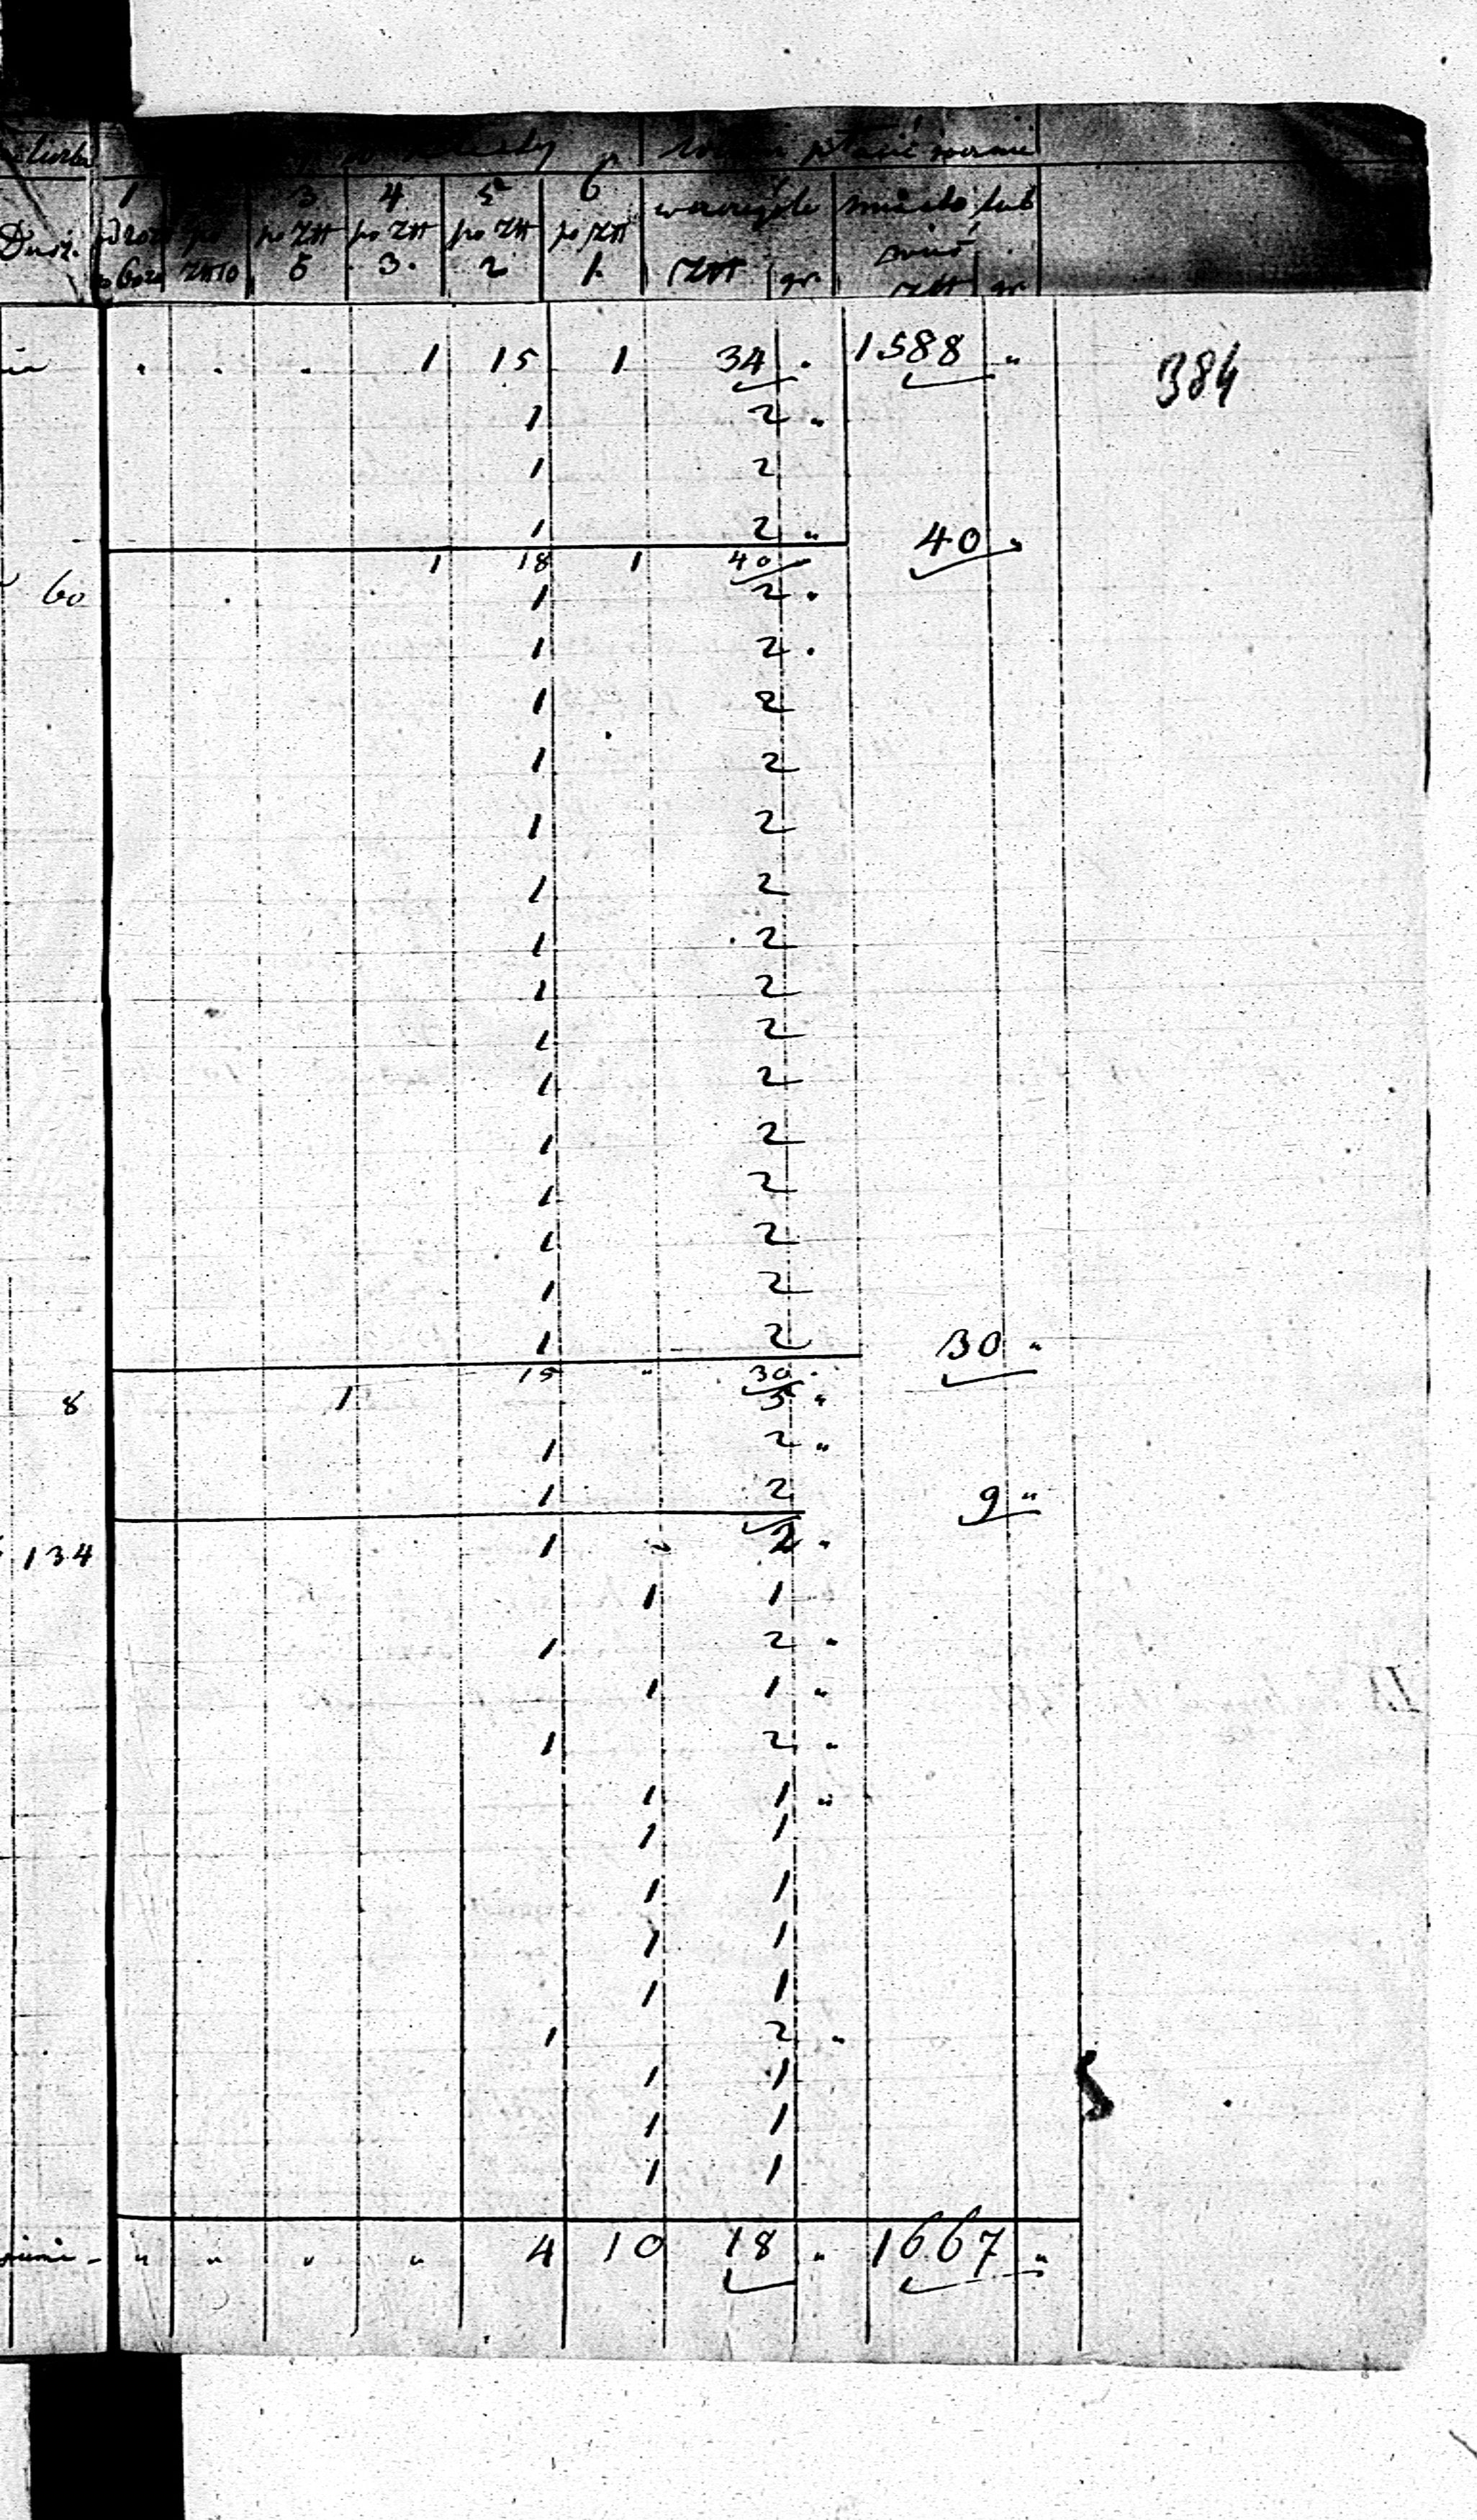 1 3 4 5 6 w szczególe miasto lub
Dusz. po po ZŁŁ po ZŁŁ po ZŁŁ po ZŁŁ wieś
ZŁŁ10 5 3. 2 1. ZŁŁ gr. ZŁŁ gr.
. . . 1 15 1 34 . 1.588 „ 384
1 2 „
1 2
1 2 „ 40 „
1 18 1 40
60 1 2 .
1 2 .
1 2
1 2
1 2
1 2
1 2
1 2
1 2
1 2
1 2
1 2
1 2
1 2
1 2 30 „
15 „ 30 .
8 1 5 „
1 2 „
1 2 9 „
134 1 2 „
1 1
1 2 „
1 1 „
1 2 „
1 1 „
1 1
1 1
1 1
1 1
1 2 „
1 1
1 1
1 1
„ „ „ „ 4 10 18 „ 1667 „